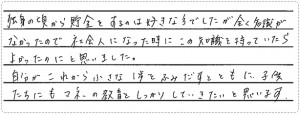 独身の頃から貯金をするのは好きな方でしたが全く知識が
なかったので社会人になった時にこの知識を持っていたら
よかったのにと思いました。
自分がこれから小さな1歩をふみだすとともに、子供
たちにもマネーの教育をしっかりしていきたいと思います